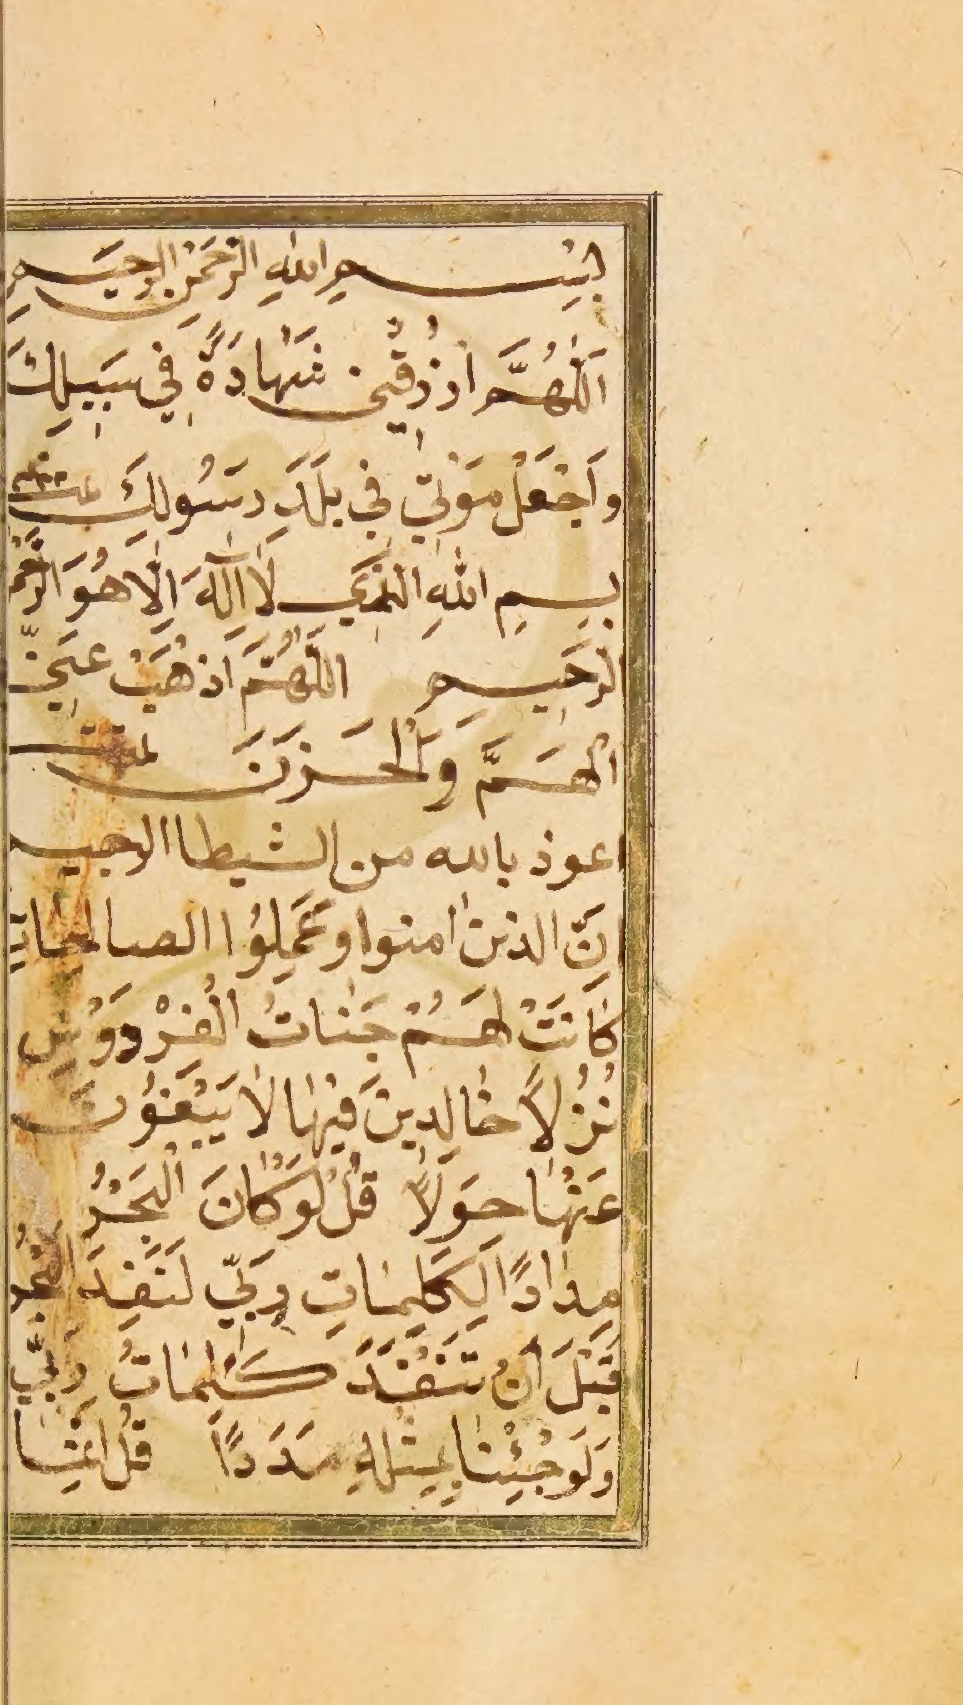 بِسْمِ اللهِ الرَّحْمٰنِ الرَّحِيمِ
اَللّٰهُمَّ ارْزُقْنِي شَهَادَةً فِي سَبِيلِكَ
وَاجْعَلْ مَوْتِي فِي بَلَدِ رَسُولِكَ
بِسْمِ اللهِ الَّذِي لَا اِلٰهَ اِلَّا هُوَ الرَّحْمٰنُ
الرَّحِيمِ اَللّٰهُمَّ اَذْهِبْ عَنِّي
الْهَمَّ وَالْحَزَنَ تمت
اعوذ بالله من الشيطا الرجيم
اِنَّ الذين امنوا وَعَمِلُوا الصالحات
كَانَتْ لَهُمْ جَنَّاتُ الْفِرْدَوْسِ
نُزُلاً خَالِدِينَ فِيهَا لَا يَبْغُونَ
عَنْهَا حِوَلاً قُلْ لَوْ كَانَ الْبَحْرُ
مِدَاداً لِكَلِمَاتِ رَبِّي لَنَفِدَ الْبَحْرُ
قَبْلَ اَنْ تَنْفَدَ كَلِمَاتُ رَبِّي
وَلَوْ جِئْنَا بِمِثْلِهِ مَدَداً قُلْ اِنَّمَا